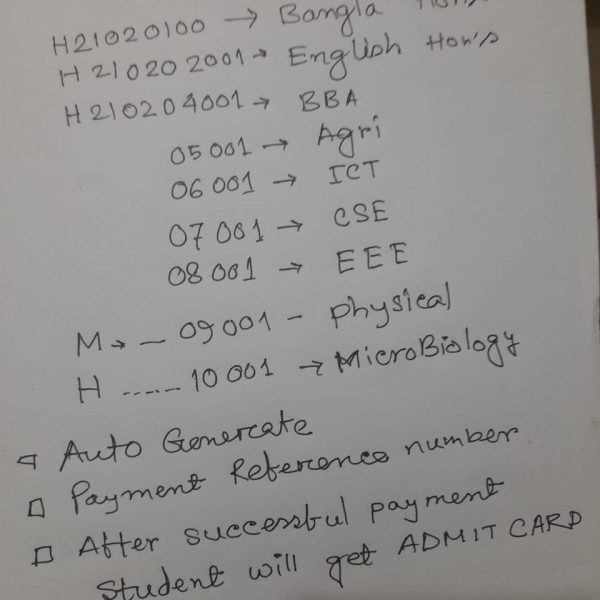 H21020100 → Bangla Hon's
H210202001 → English Hon's
H210204001 → BBA
05001 → Agri
06001 → ICT
07001 → CSE
08001 → EEE
M → _ 09001 - Physical
H ...... 10001 → MicroBiology
Auto Generate
□ Payment Reference number
□ After successful payment
Student will get ADMIT CARD